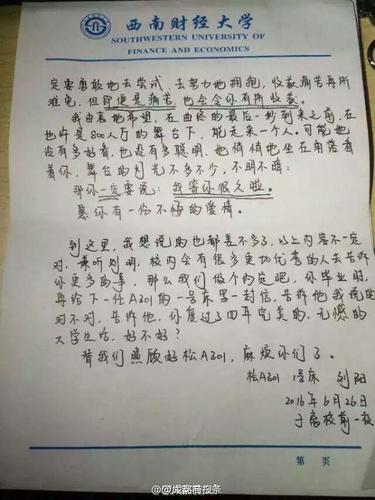 西南财经大学
SOUTHWESTERN UNIVERSITY OF
FINANCE AND ECONOMICS
定要勇敢地去尝试,去努力地拥抱,收获痛苦再所
难免,但即便是痛苦,也会令你有所收获。
我由衷地希望,在曲终的最后一秒到来之前,在
也许是800人厅的舞台下,能走来一个人。可能她
没有多好看,也没有多聪明,她悄悄地坐在角落看
着你,舞台的灯光不多不少,不明不暗:
那你一定要说:我等你很久啦。
愿你有一份不悔的爱情。
到这里,我想说的也都差不多了,以上内容不一定
对,兼听则明,校内会有很多更加优秀的人去告诉
你更多的事,那么我们做个约定吧,你毕业时,
再给下一任A301的一号床写一封信,告诉他我说的
对不对,告诉他,你度过了四年完美的,无憾的
大学生活,好不好?
替我们照顾好松A301,麻烦你们了。
松A301 1号床 刘阳
2016年6月26日
于离校前一夜
第 页
@成都商报条